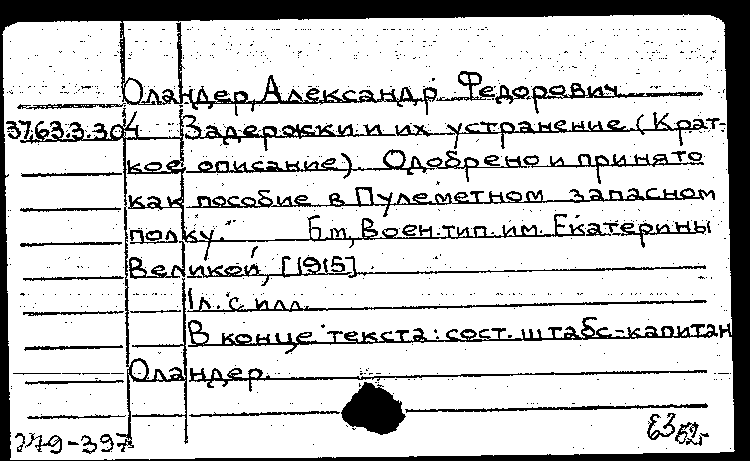 Оландер, Александр Федорович
37.63.3.304 Задержки и их устранение (Крат-
кое описание). Одобрено и принято
как пособие в Пулеметном запасном
полку. Б.м., Воен. тип. им. Екатерины
Великой, [1915].
1л. с илл.
В конце текста: сост. штабс-капитан
Оландер.
279-397